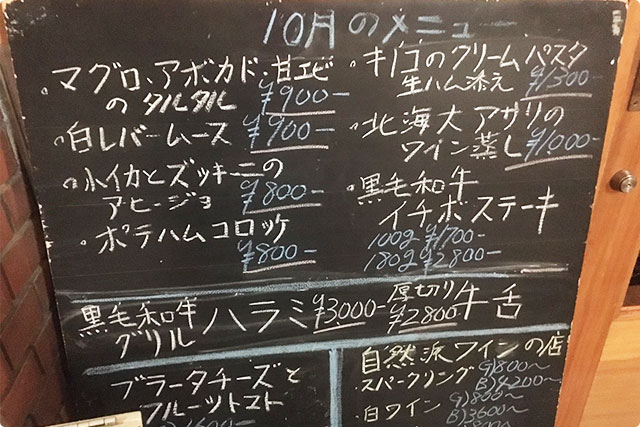 10月のメニュー
・マグロ、アボカド、甘エビ
のタルタル ¥900-
・白レバームース ¥900-
・小イカとズッキーニの
アヒージョ ¥800-
・ポテハムコロッケ
¥800-
・キノコのクリームパスタ
生ハム添え ¥1300-
・北海大アサリの
ワイン蒸し ¥1000-
・黒毛和牛
イチボステーキ
100g ¥1700-
180g ¥2800-
黒毛和牛
グリル ハラミ ¥3000-
厚切り牛舌
¥2800
ブラータチーズと
フルーツトマト
自然派ワインの店
スパークリング G)800〜
B)4200〜
白ワイン G)800〜
B)3600〜